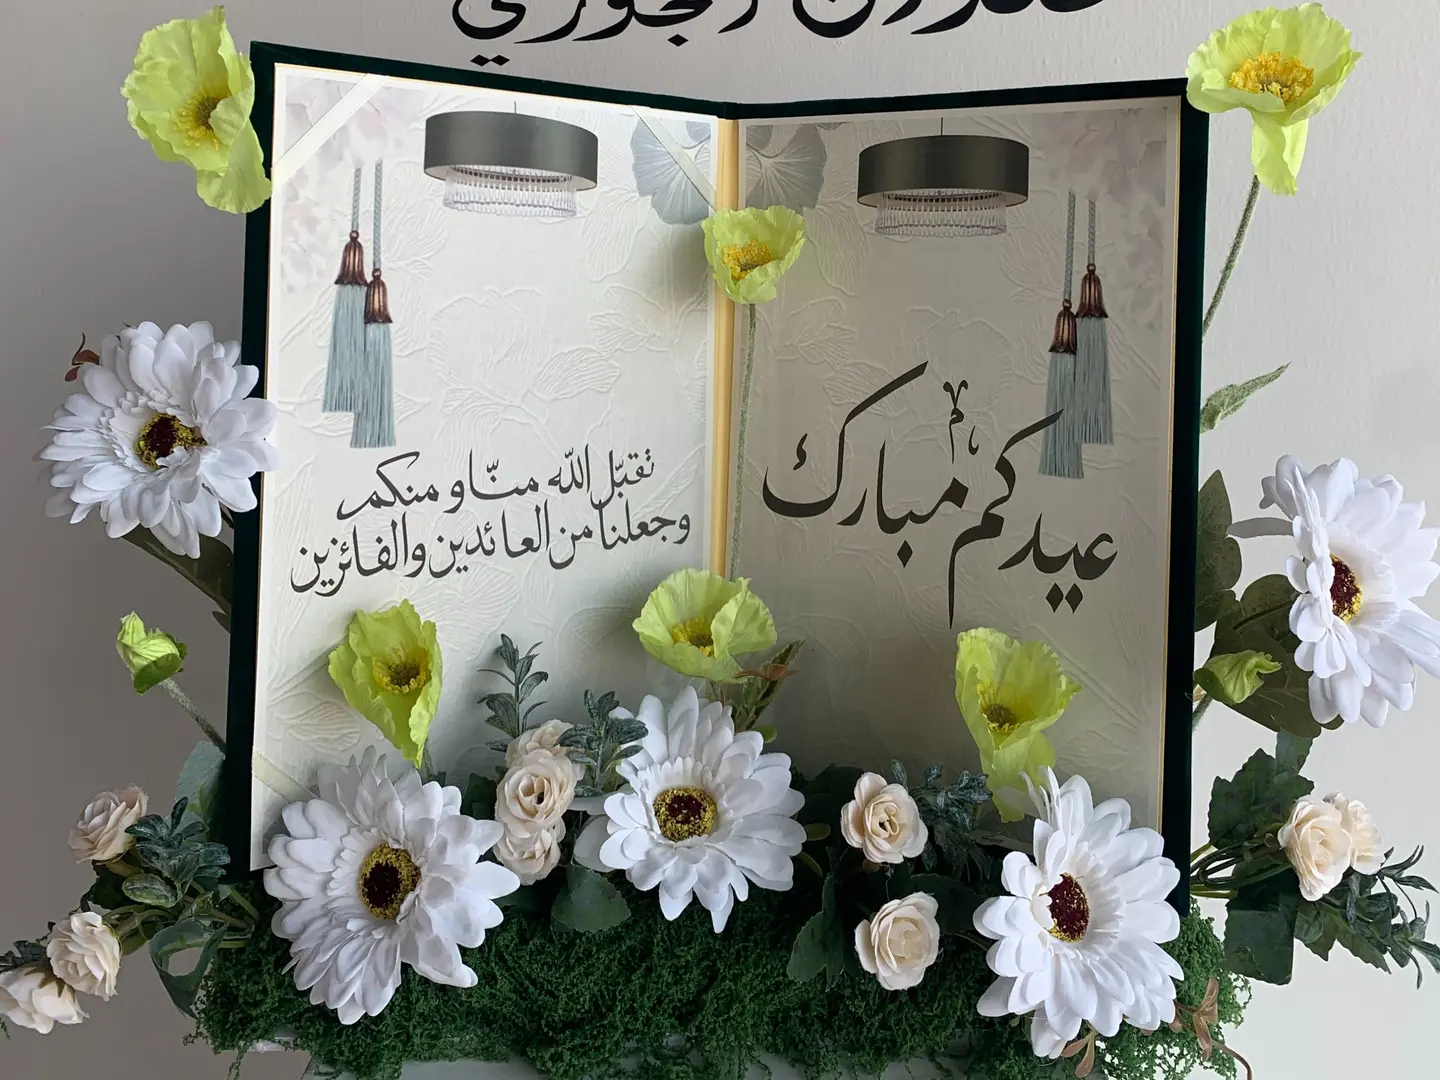 عيدكم مبارك
تقبّل الله منّا و منكم
وجعلنا من العائدين والفائزين